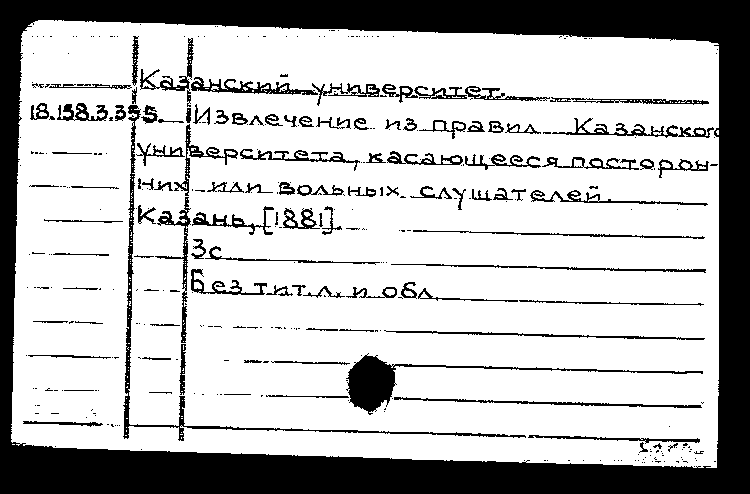 Казанский университет.
18.158.3.355. Извлечение из правил Казанского
университета, касающееся посторон-
них или вольных слушателей.
Казань, [1881].
3с
Без тит.л. и обл.